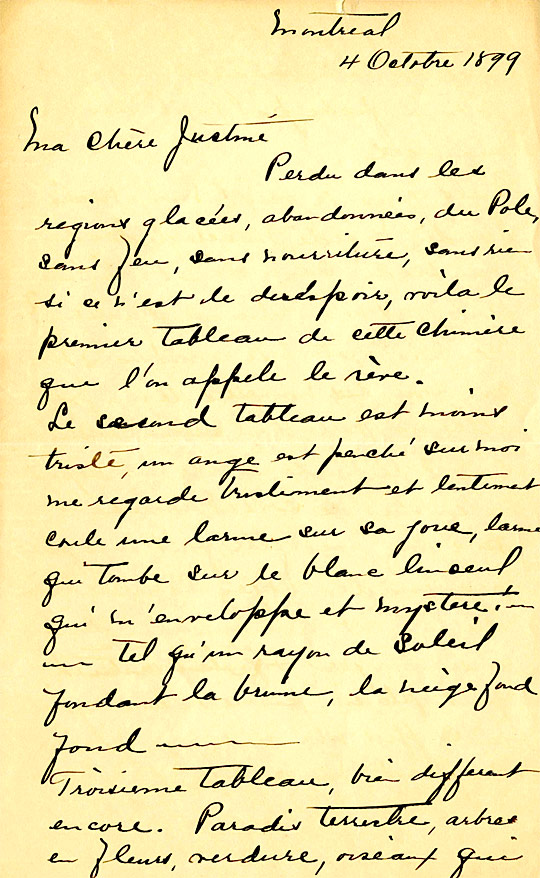 Montréal
4 Octobre 1899
Ma chère Justine
Perdu dans les
régions glacées, abandonnées, du Pole,
sans feu, sans nourriture, sans rien
si ce n'est le désespoir, voila le
premier tableau de cette chimère
que l'on appele le rêve.
Le second tableau est moins
triste, un ange est penché sur moi
me regarde tristement et lentement
coule une larme sur sa joue, larme
qui tombe sur le blanc linceul
qui m'enveloppe et mystère! —
— tel qu'un rayon de soleil
fondant la brume, la neige fond
fond ———
Troisième tableau, bien different
encore. Paradis terrestre, arbres
en fleurs, verdure, oiseaux qui